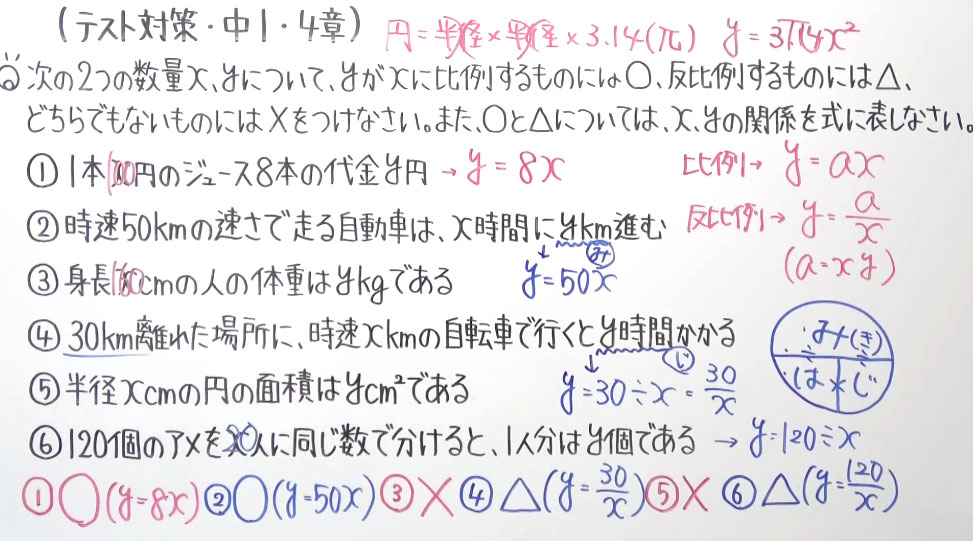 (テスト対策・中1・4章) 円=半径×半径×3.14(π) y=3.14x²
次の2つの数量x、yについて、yがxに比例するものには○、反比例するものには△、
どちらでもないものには×をつけなさい。また、○と△については、x、yの関係を式に表しなさい。
①1本x円のジュース8本の代金y円 → y=8x 比例→ y=ax
②時速50kmの速さで走る自動車は、x時間にykm進む 反比例→ y=a/x
み
③身長xcmの人の体重はykgである y=50x (a=xy)
④30km離れた場所に、時速xkmの自転車で行くとy時間かかる み(き)
じ は×じ
⑤半径xcmの円の面積はycm²である y=30÷x=30/x
⑥120個のアメをx人に同じ数で分けると、1人分はy個である → y=120÷x
①○(y=8x) ②○(y=50x) ③× ④△(y=30/x) ⑤× ⑥△(y=120/x)